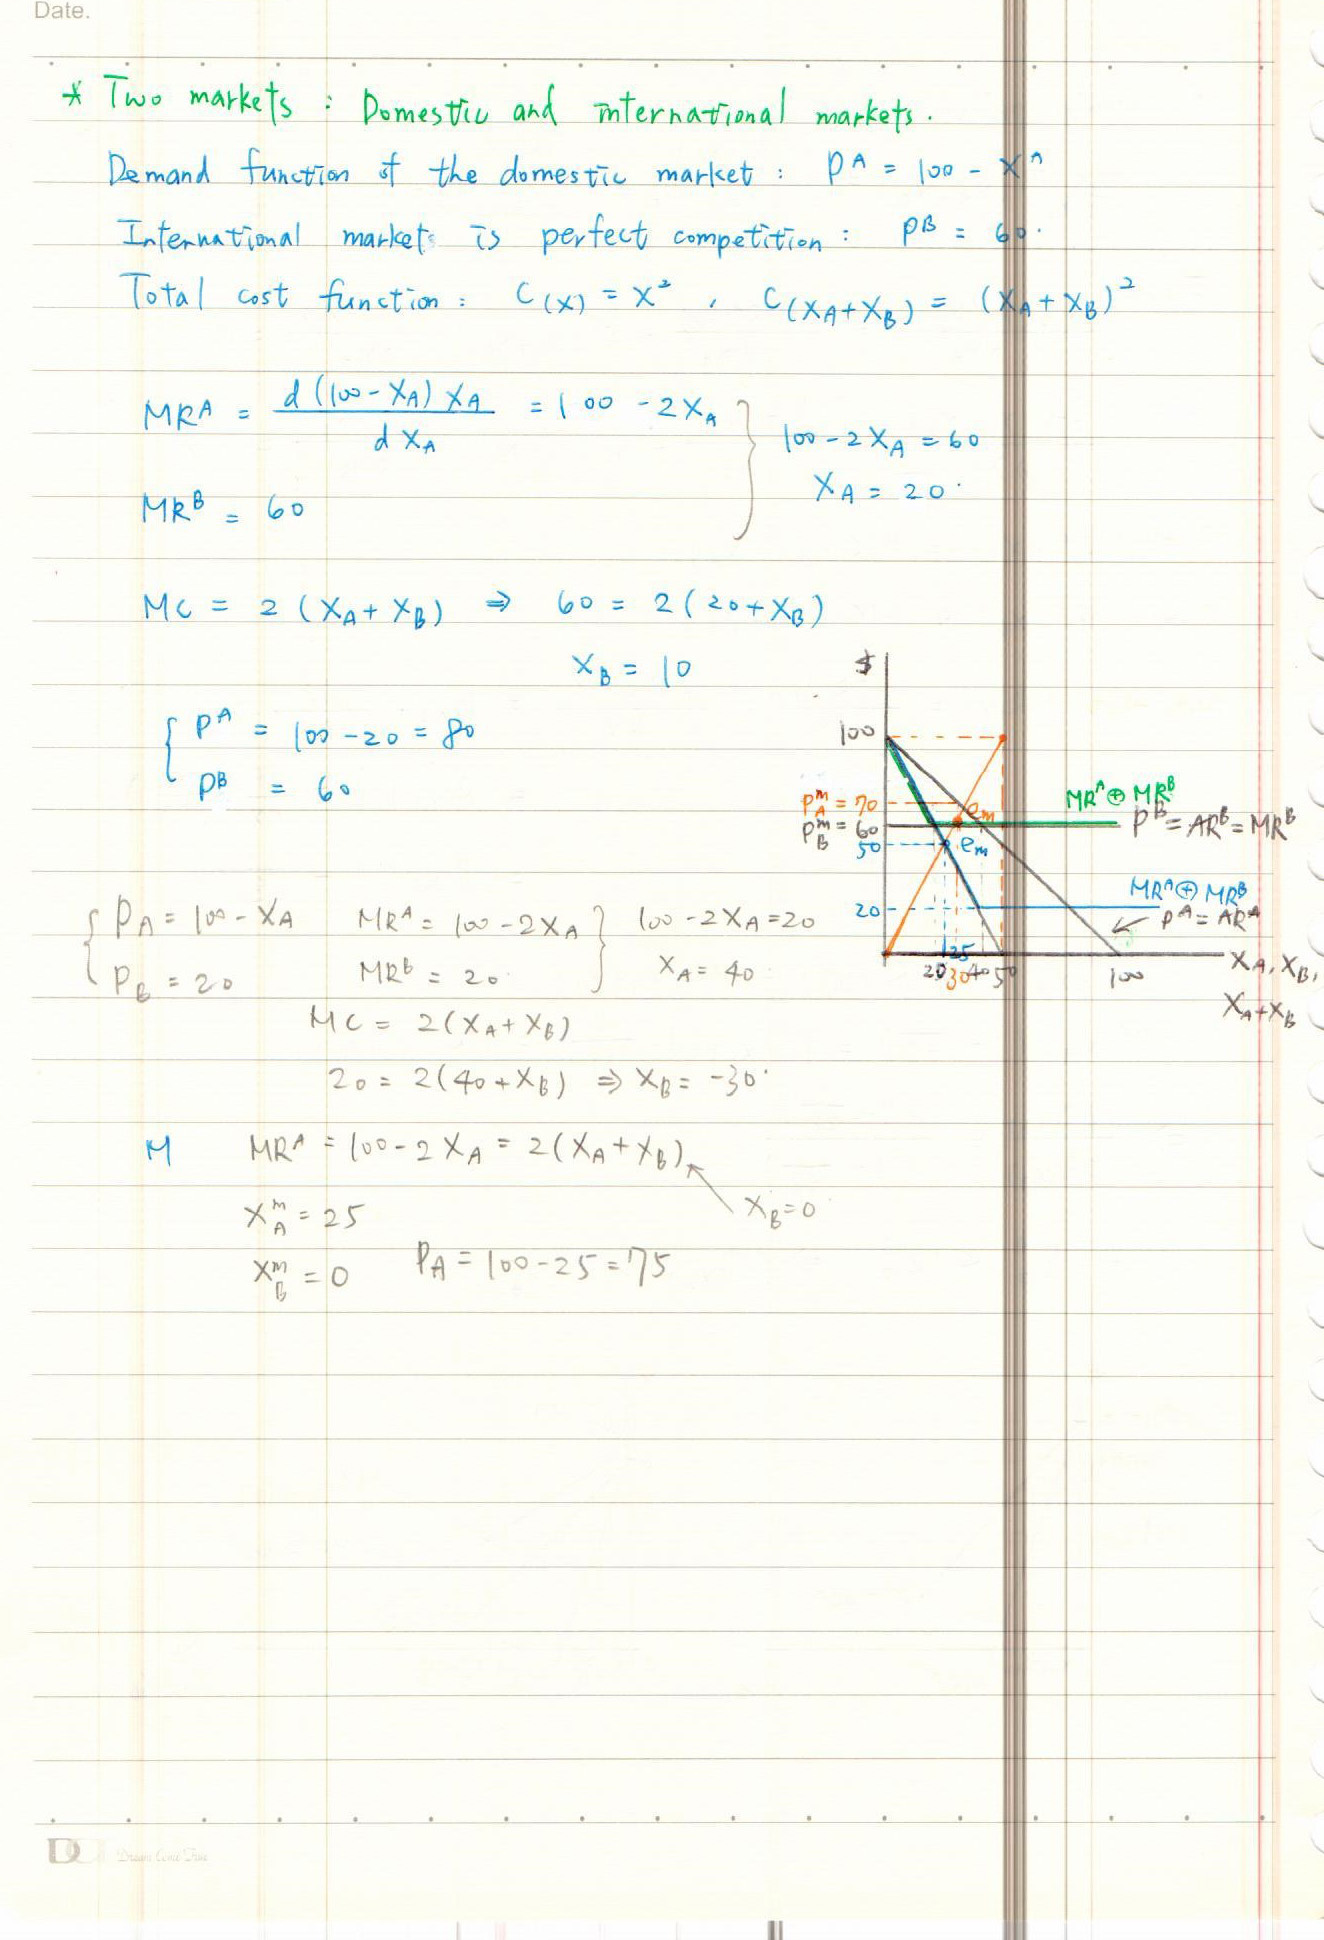 Date.
* Two markets : Domestic and international markets.
Demand function of the domestic market : P^A = 100 - X^A
International markets is perfect competition : P^B = 60.
Total cost function : C(X) = X² , C(X_A+X_B) = (X_A+X_B)²
MR^A = d(100-X_A)X_A / dX_A = 100 - 2X_A
100-2X_A = 60
X_A = 20
MR^B = 60
MC = 2(X_A+X_B) ⇒ 60 = 2(20+X_B)
X_B = 10
P^A = 100-20 = 80
P^B = 60
$
100
P_A^m = 70
P_B^m = 60
50
20
e_m
e_m
MR^A ⊕ MR^B
P^B = AR^B = MR^B
MR^A ⊕ MR^B
P^A = AR^A
20 25 30 40 50 100
X_A, X_B,
X_A+X_B
P_A = 100-X_A MR^A = 100-2X_A 100-2X_A=20
P_B = 20 MR^B = 20 X_A = 40
MC = 2(X_A+X_B)
20 = 2(40+X_B) ⇒ X_B = -30
M MR^A = 100-2X_A = 2(X_A+X_B)
X_B=0
X_A^m = 25
X_B^m = 0 P_A = 100-25=75
D
Dream Come True